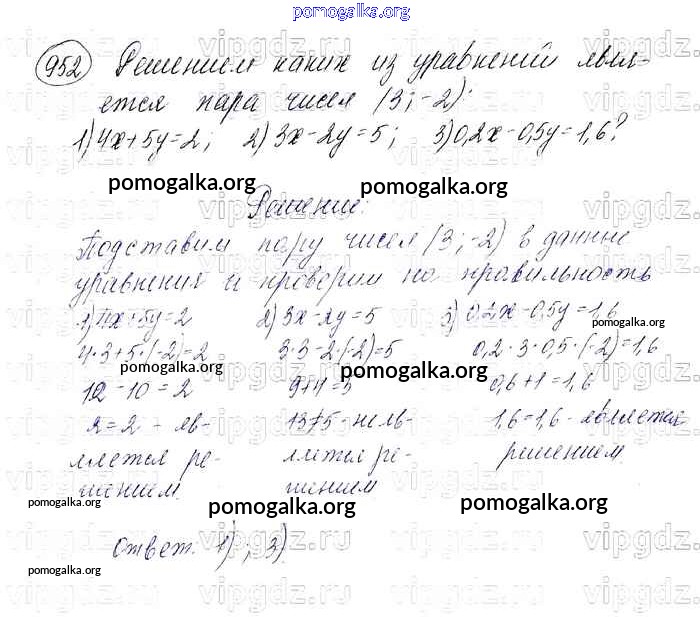 pomogalka.org
952 Решением каких из уравнений явл-
яется пара чисел (3;-2):
1) 4x+5y=2; 2) 3x-2y=5; 3) 0,2x-0,5y=1,6?
pomogalka.org pomogalka.org
Решение:
Подставим пару чисел (3;-2) в данные
уравнения и проверим на правильность
1) 4x+5y=2 2) 3x-2y=5 3) 0,2x-0,5y=1,6
pomogalka.org
4·3+5·(-2)=2 3·3-2·(-2)=5 0,2·3-0,5·(-2)=1,6
pomogalka.org pomogalka.org
12-10=2 9+4=5 0,6+1=1,6
2=2 - яв- 13≠5 - не яв- 1,6=1,6 - является
ляется ре- ляется ре- решением
шением шением
pomogalka.org pomogalka.org pomogalka.org
Ответ: 1); 3)
pomogalka.org
vipgdz.ru